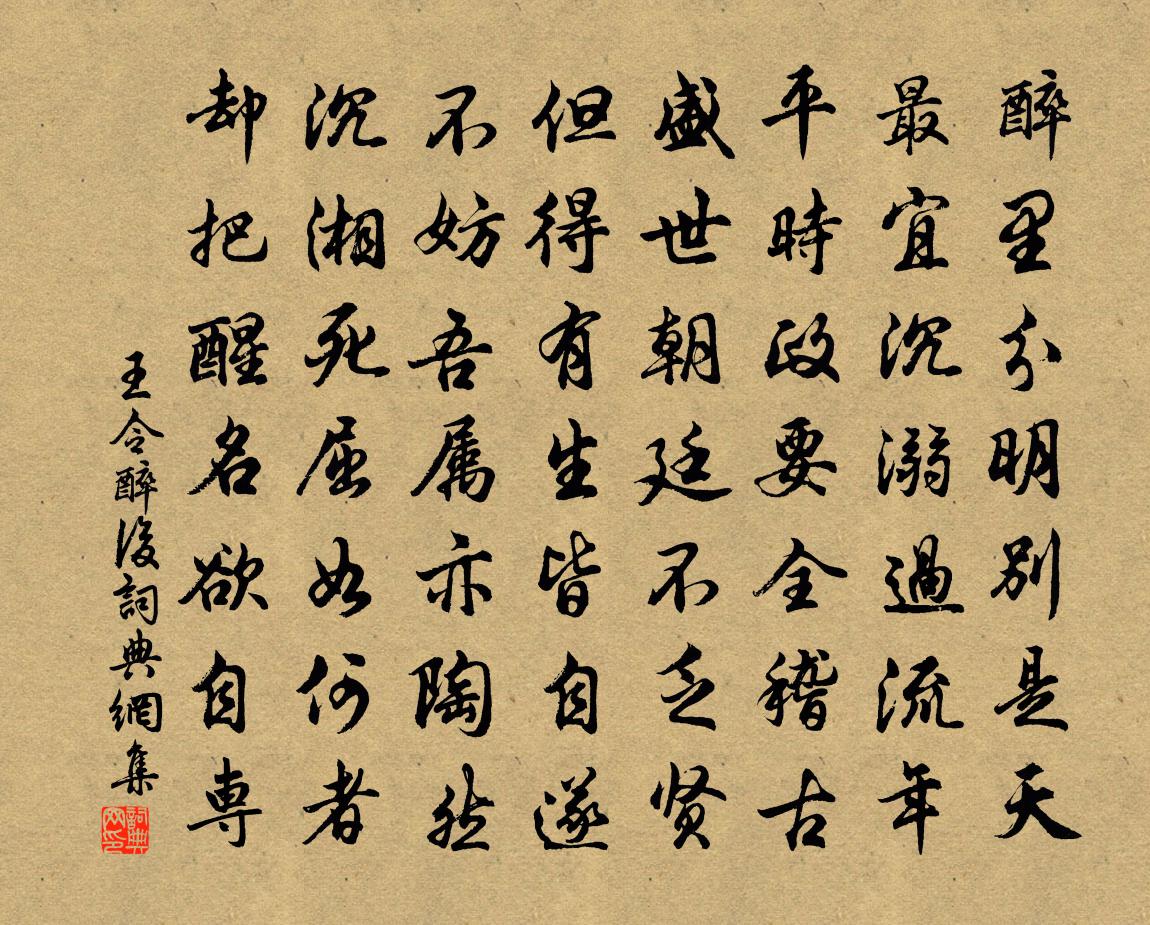 醉里分明別是天
最宜沉溺過流年
平時政要全稽古
盛世朝廷不乏贤
但得有生皆自遂
不妨吾属亦陶然
沉湘死屈如何者
却把醒名欲自専
王令醉後詞典網集
詞典网印